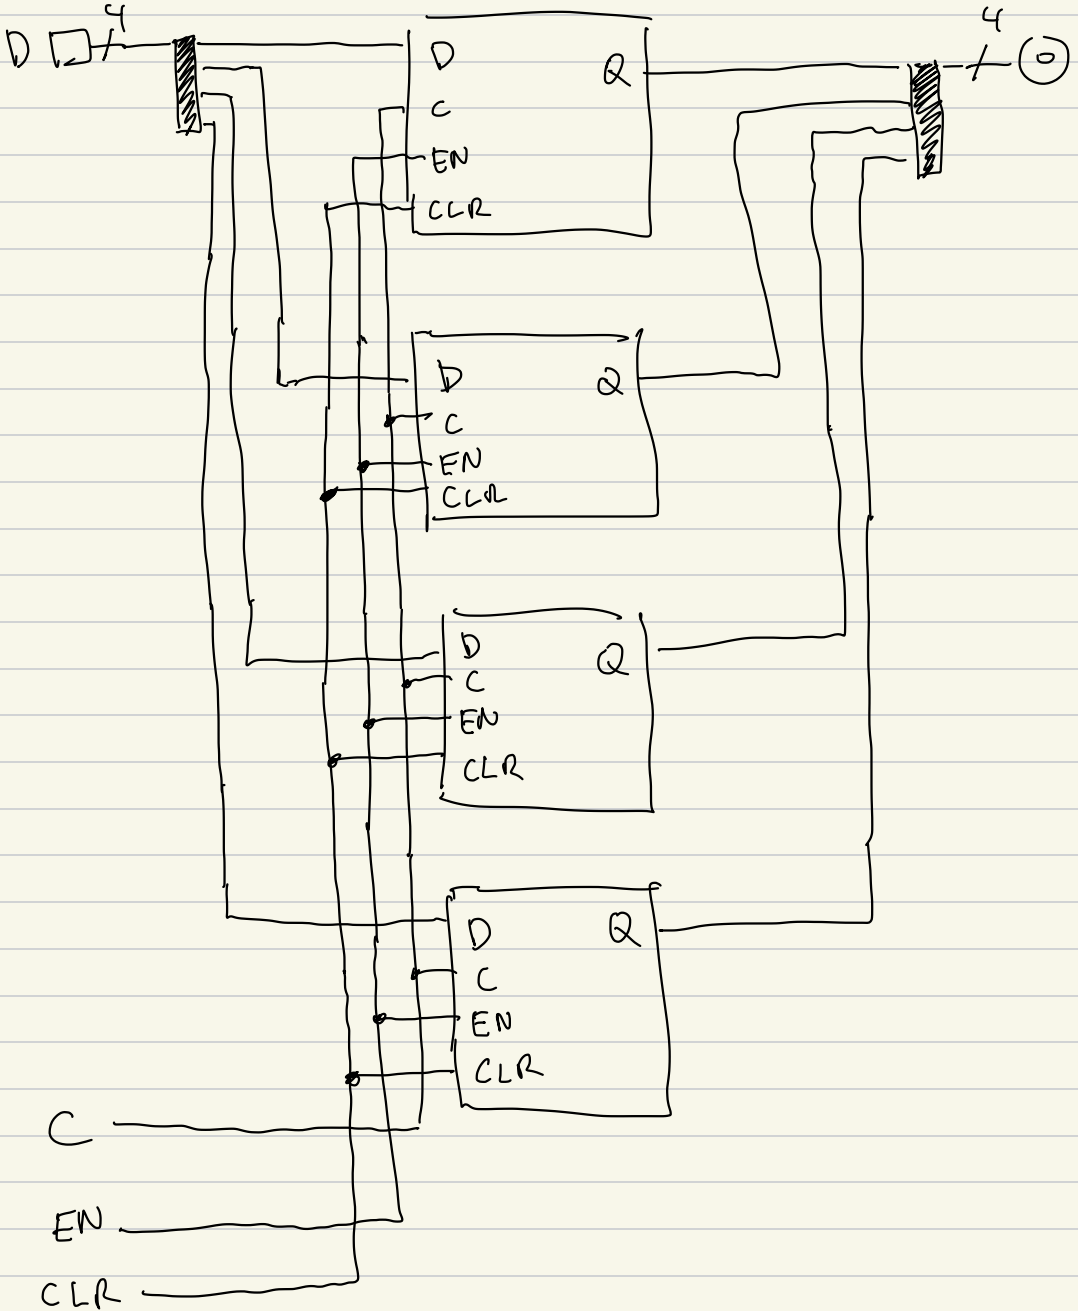 4
D
4
D
Q
C
EN
CLR
D
Q
C
EN
CLR
D
Q
C
EN
CLR
D
Q
C
EN
CLR
C
EN
CLR